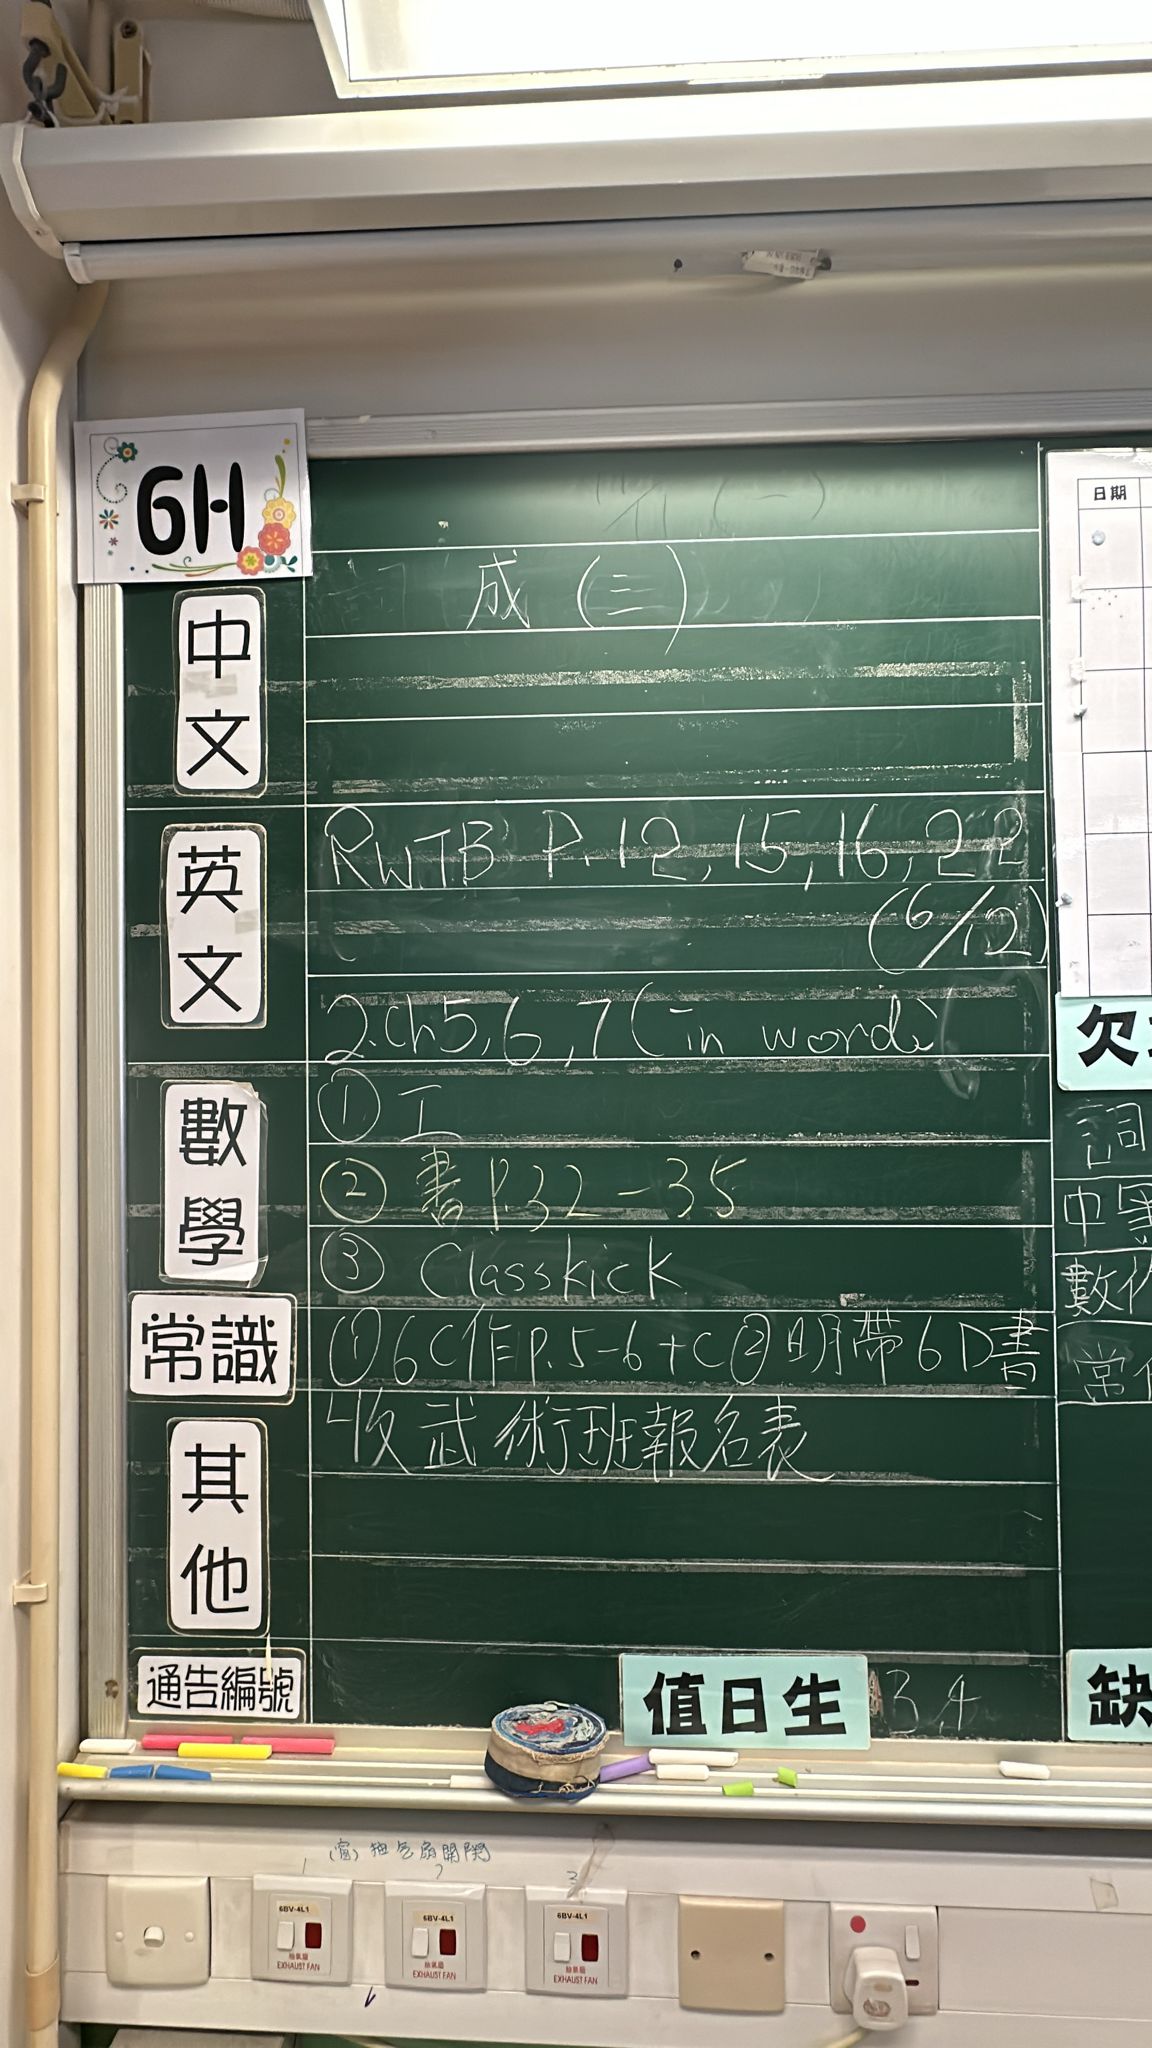 6H
日期
中文
成 (三)
英文
RWTB P.12, 15, 16, 22
(6/12)
2. Ch5, 6, 7 (in word)
數學
① 工
② 書 P.32 - 35
③ Classkick
常識
① 6C作P.5-6+C ② 明帶6D書
其他
收武術班報名表
通告編號
值日生
3, 4
欠
詞
中
數作
常作
缺
抽氣扇開關
1 2 3
6BV-4L1 6BV-4L1 6BV-4L1
抽氣扇 抽氣扇 抽氣扇
EXHAUST FAN EXHAUST FAN EXHAUST FAN